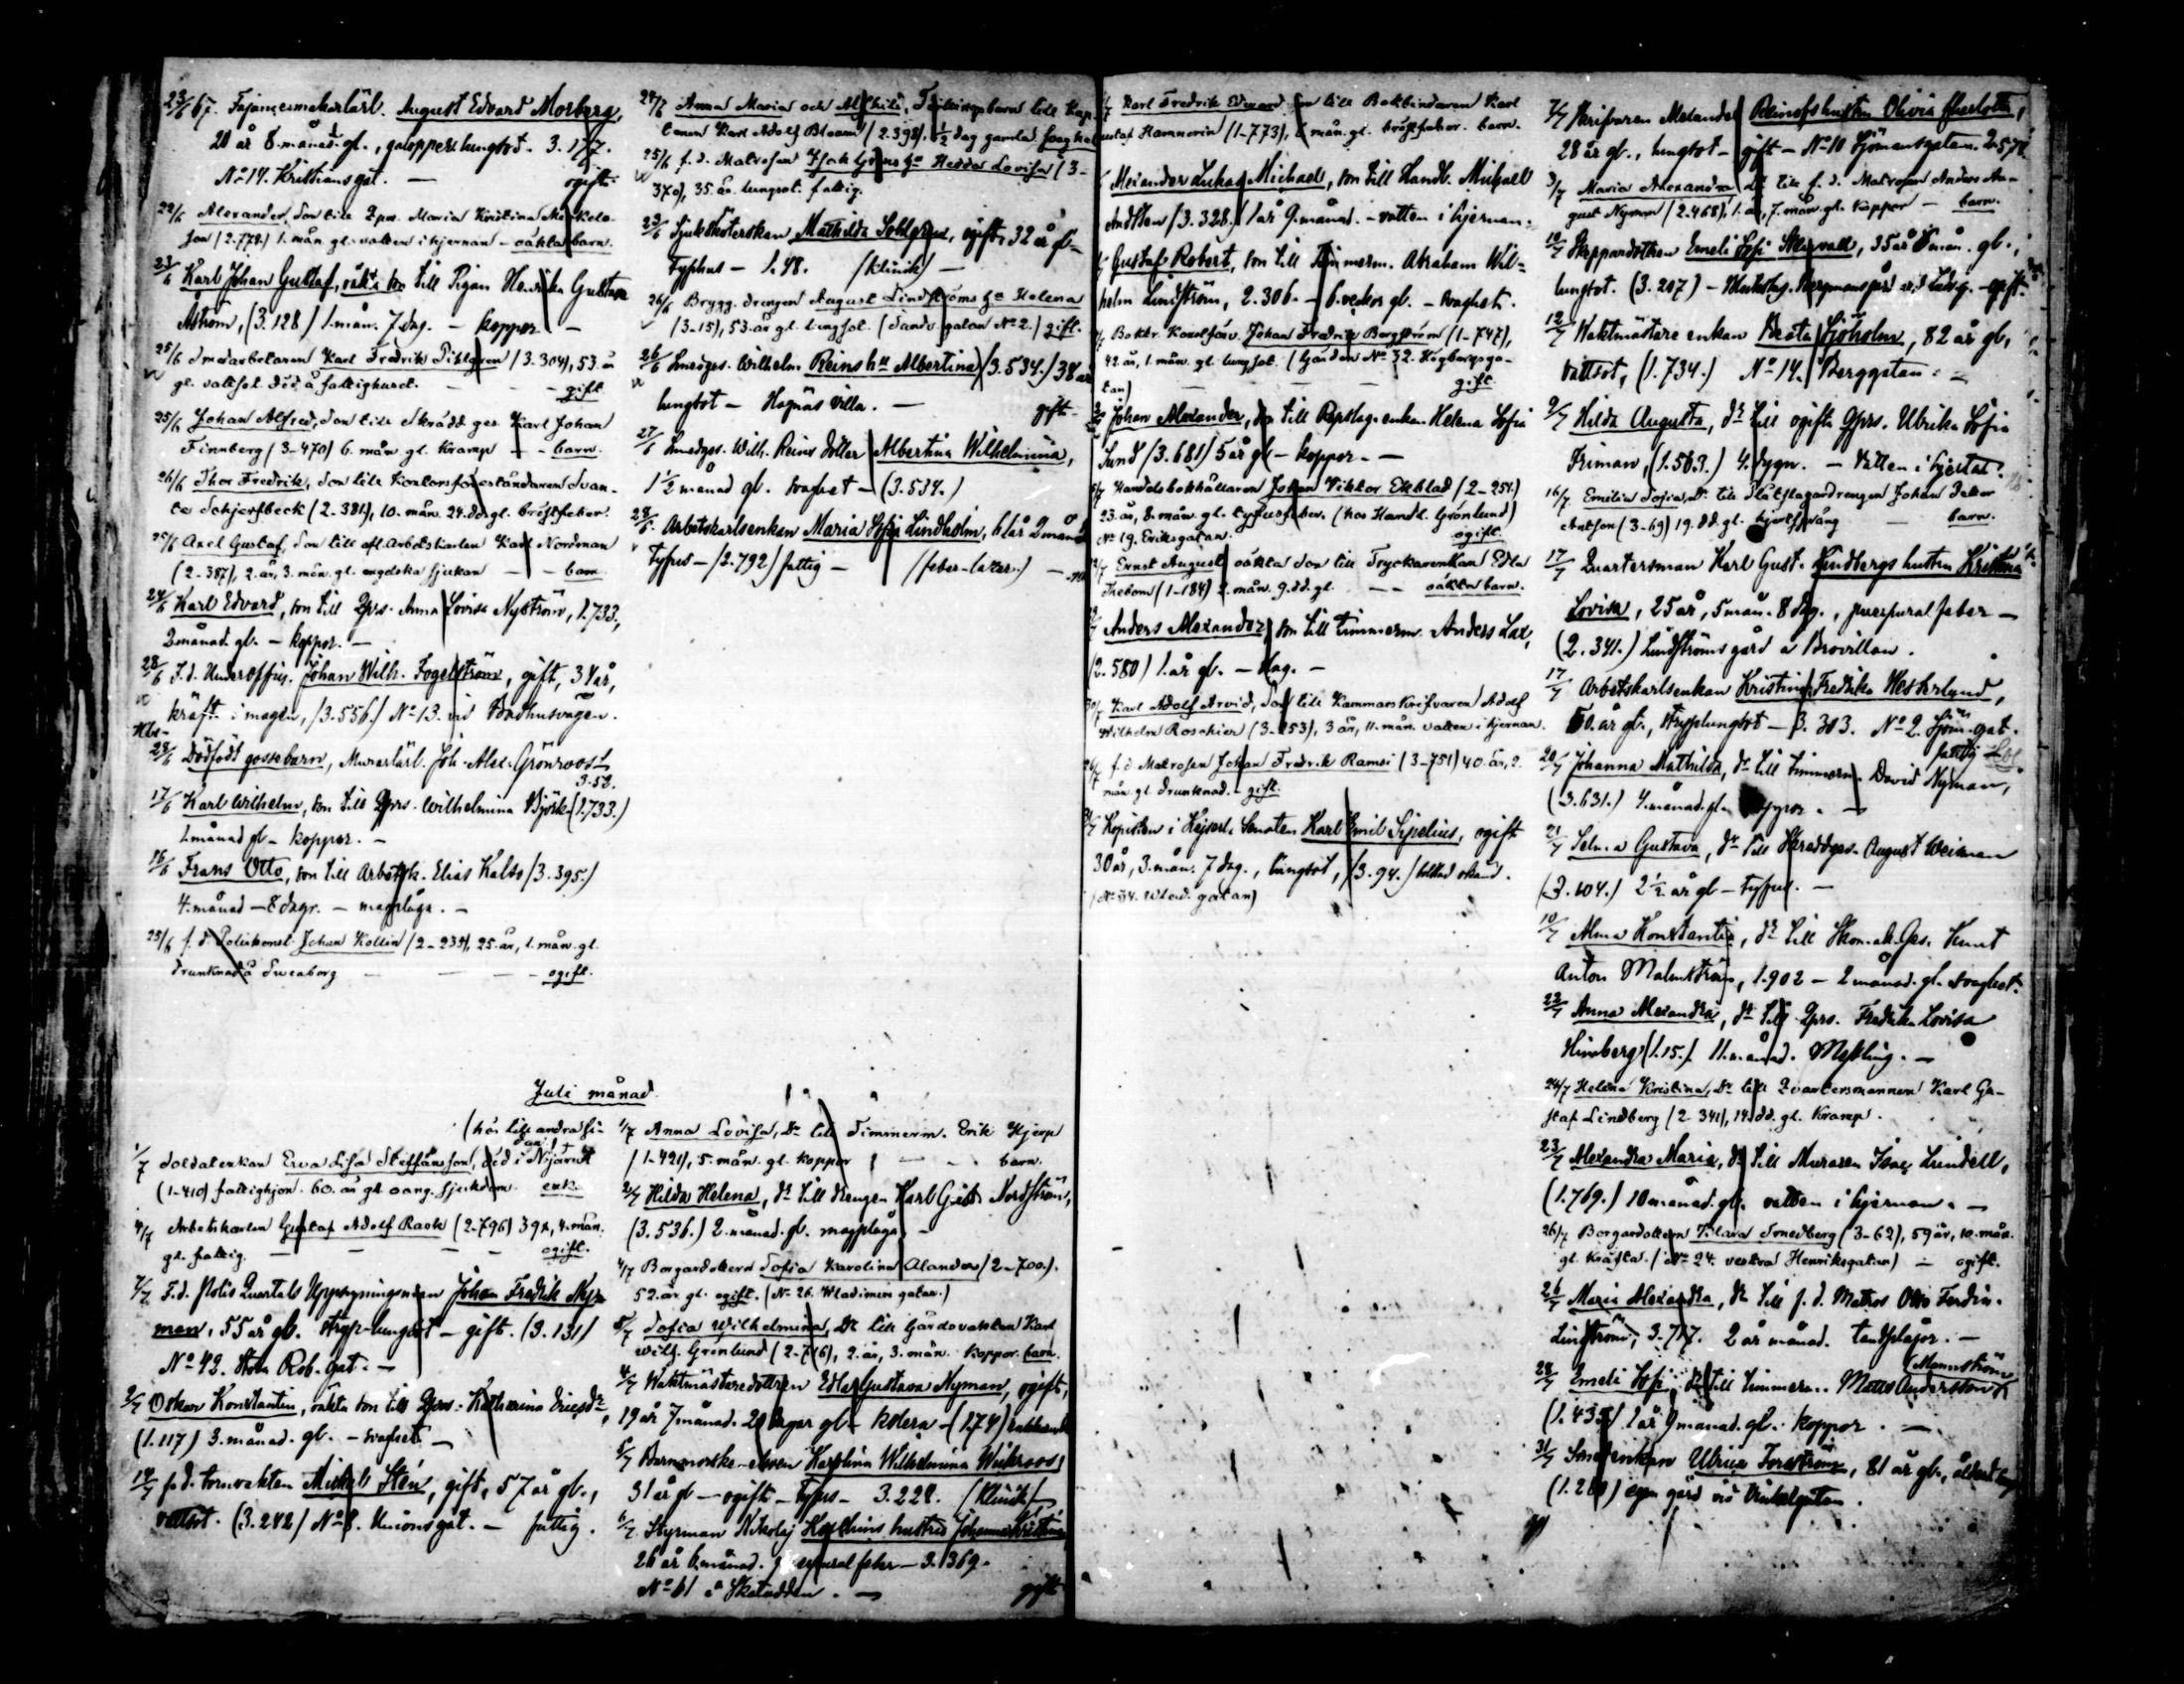 23/6 67. Fajancemakarlärl. August Edvard Morberg,
20 år 8 månad. gl., galopperl lungsot. 3. 177.
No 14. Kristiansgat. — ogift.
22/6 Alexander, son till Qprs. Maria Kristina
son (2.778.) 1. mån. gl. vatten i hjernan – oäkta barn.
23/6 Karl Johan Gustaf, oäkta son till Pigan Henrika Gustava
Åström, (3.128) 1. mån. 7 dag. – koppor. –
25/6 Smedarbetaren Karl Fredrik Piklgren (3.304), 53. å
gl. vattsot. död å fattighuset. – gift.
25/6 Johan Alfred, son till Skrädd. ges. Karl Johan
Finnberg (3-470) 6. mån. gl. kramp – barn.
26/6 Thor Fredrik, son till Kontorsföreståndaren Svan-
te Schjerfbeck (2.381), 10. mån. 24. dd. gl. bröstfeber.
25/6 Axel Gustaf, son till afl. Arbetskarlen Karl Nordman
(2.387), 2. år, 3. mån. gl. engelska sjukan – barn.
24/6 Karl Edvard, son till Qprs. Anna Lovisa Nyström, 1.733,
2 månad. gl. – koppor. –
28/6 F.d. Underoffic. Johan Wilh. Fogelström, gift, 34 år,
kräft. i magen, (3.556.) No 13. vid Badhusvägen.
28/6 Dödfödt gossebarn, Murarlärl. Joh. Alex. Grönroos
3.53.
17/6 Karl Wilhelm, son till Qprs. Wilhelmina Björk (1.733.)
1 månad gl – koppor. –
16/6 Frans Otto, son till Arbetsk. Elias Kalso (3.395.)
4 månad – 8 dagr. – magplåga. –
25/6 f.d. Poliskonst. Johan Kollin (2-235), 25. år, 1. mån. gl.
drunknad å Sveaborg – ogift.
24/6 Anna Maria och Tvillingbarn till Kap-
tenen Karl Adolf (2.398). ½ dag gamla svaghet
25/6 f.d. Matrosen Isak Göös ha Hedda Lovisa (3-
370), 35. år. lungsot. fattig.
23/6 Sjuksköterskan Mathilda Sohlgren, ogift, 32 år gl –
Typhus – 1.48. (klinik) –
26/6 Brygg. drengen August Lindströms ha Helena
(3-15), 53. år gl. lungsot. (Sandv. gatan No 2.) gift.
26/6 Smedges. Wilhelm Reins hu Albertina (3.534.) 38 år
lungsot – Hagnäs villa. – gift.
27/6 Smedges. Wilh. Reins dotter Albertina Wilhelmina,
1½ månad gl. svaghet – (3.534.)
28/6 Arbetskarlsenkan Maria Sofia Lindholm, 61 år 2 månad
Typus – (2.792) fattig – (feber-lazar.) –
Juli månad.
(hör till andra si-
dan!)
1/7 Soldatenkan Eva Lisa Steffansson, död i Nijärvi
(1-410) fattighjon. 60. år gl. oang. sjukdom. enk.
4/7 Arbetskarlen Gustaf Adolf Rask (2.796) 39 å, 4. mån.
gl. fattig. – ogift.
7/7 F.d. Polis Quartals Uppsyningsman Johan Fredrik Ny-
man, 55 år gl. stryp-lungsot – gift. (3.131)
No 42. Stora Rob. gat. –
2/7 Oskar Konstantin, oäkta son till Qprs. Katharina Ericsdr,
(1.117) 3. månad. gl. – svaghet. –
14/7 f.d. tornvakten Mickel Stén, gift, 57 år gl.,
vattsot. (3.242) No 8. Unionsgat. – fattig.
1/7 Anna Lovisa, Dr till Timmerm. Erik Hjerp
(1-421), 5. mån. gl. koppor – barn.
2/7 Hilda Helena, dr till drengen Karl Gust. Nordström,
(3.536.) 2. månad. gl. magplåga. –
4/7 Borgardottern Sofia Karolina Alander (2-700).
52. år gl. ogift. (No 26. Wladimirs gatan.)
5/7 Sofia Wilhelmina, Dr till Gårdsvakten Karl
Wilh. Grönlund (2-716), 2. år, 3. mån. koppor. barn.
4/7 Waktmästaredottren Edla Gustava Nyman, ogift,
19 år 7 månad. 20 dagar gl – kolera – (1.74)
5/7 Barnmorske-eleven Karolina Wilhelmina Wickroos,
31 år gl – ogift – Typus – 3.228. (klinik) –
6/7 Styrman Nikolaj hustru Johanna Kristina,
26 år 6 månad. puerperal feber – 3.1369.
No 61 å Skatudden. – gift
/7 Karl Fredrik Edvard son till Bokbindaren Karl
Gustaf Hamnerin (1-773), 6 mån. gl. bröstfeber. barn.
Alexander Lukas Michael, son till Handl. Michael
(3.328.) 1 år 9. månad. – vatten i hjernan.
Gustaf Robert, son till Timmerm. Abraham Wil-
helm Lindström, 2.306. – 6 veckor gl. – svaghet.
Boktr. Konstförv. Johan Fredrik Bergström (1-747),
42. år, 1. mån. gl. lungsot. (Gården No 32. Högbergsga-
tan) – gift.
Johan Alexander, son till Repslag. enkan Helena Sofia
Sund (3.681) 5 år gl – koppor. –
Handelsbokhållaren Johan Viktor Ekblad (2-254.)
23. år, 8. mån. gl. tyfusfeber. (hos Handl. Grönlund)
No 19. Eriksgatan. ogift.
Ernst August, oäkta son till Tryckarenkan Edla
Thebom (1-184) 2. mån. 9. dd. gl. – oäkta barn.
Anders Alexander, son till timmerm. Anders Lax,
(2.580) 1. år gl. – slag. –
Karl Adolf Arvid, son till Kammarskrifvaren Adolf
Wilhelm Roschier (3-153), 3 år, 11. mån. vatten i hjernan.
f.d. Matrosen Johan Fredrik Ramsi (3-751) 40. år, 2.
mån. gl. drunknad. – gift.
Kopisten i Kejserl. Senaten Karl Emil Sipelius, ogift
30 år, 3. mån. 7 dag., lungsot, (3.94.)
(No 34. Wlad. gatan)
7/7 Skrifvaren Alexander Reinofs hustru Olivia Charlotta,
28 år gl., lungsot – gift – No 10 Sjömansgatan. 2.578
3/7 Maria Alexandra, Dr till f.d. Matrosen Anders Au-
gust Nyman (2.468), 1. år, 7. mån. gl. koppor – barn.
10/7 Skeppardottren Emeli Sofi 35 år 8 mån. gl.,
lungsot. (3.207) – gift.
12/7 Waktmästare enkan Beata Sjöholm, 82 år gl,
vattsot, (1.734.) No 14. Berggatan. –
9/7 Hilda Augusta, dr till ogifta Qprs. Ulrika Sofia
Friman, (1.563.) 4. dygn. – Vatten i hjertat.
16/7 Emilia Sofia, Dr till Slätslagardrengen Johan
(3-69) 19. dd. gl. – barn.
17/7 Quartersman Karl Gust. Lindbergs hustru Kristina
Lovisa, 25 år, 5 mån. 8 dag., puerpural feber –
(2.341.) Lindströms gård å Brovillan.
17/7 Arbetskarlsenkan Kristina Fredrika Westerlund,
50. år gl., stryplungsot – 3. 303. No 2. gat.
fattig
20/7 Johanna Mathilda, dr till timmerm. David Nyman,
(3.631.) 4. månad. gl – koppor. –
21/7 Selma Gustava, dr till Skräddges. August Weiman
(3.104.) 2½ år gl – typus. –
10/7 Alma Konstantia, dr till Skomak. Ges. Knut
Anton Malmström, 1.902 – 2 månad. gl. svaghet.
22/7 Anna Alexandra, dr till Qprs. Fredrika Lovisa
Himberg (1.15.). 11. månad. Messling. –
24/7 Helena Kristina, Dr till Qvartersmannen Karl Gu-
staf Lindberg (2.341), 14. dd. gl. kramp.
23/7 Alexandra Maria, dr till Muraren Isac Lindell,
(1.769.) 10 månad. gl. vatten i hjernan. –
26/7 Borgardottern Klara Smedberg (3-62), 59 år, 10. mån.
gl. kräfta. (No 24. vestra Henriksgatan) – ogift.
26/7 Maria Alexandra, dr till f.d. Matros Otto Ferdin.
Lindström, 3.717. 2 år månad. tandplågor. –
28/7 Emeli Sofi, dr till timmerm. Matts Andersson
(Mannström
(1.435) 1 år 9 månad. gl. koppor. –
31/7 enkan Ulrica Forsström, 81 år gl., ålderd.
(1.260) egen gård vid Vinkelgatan.